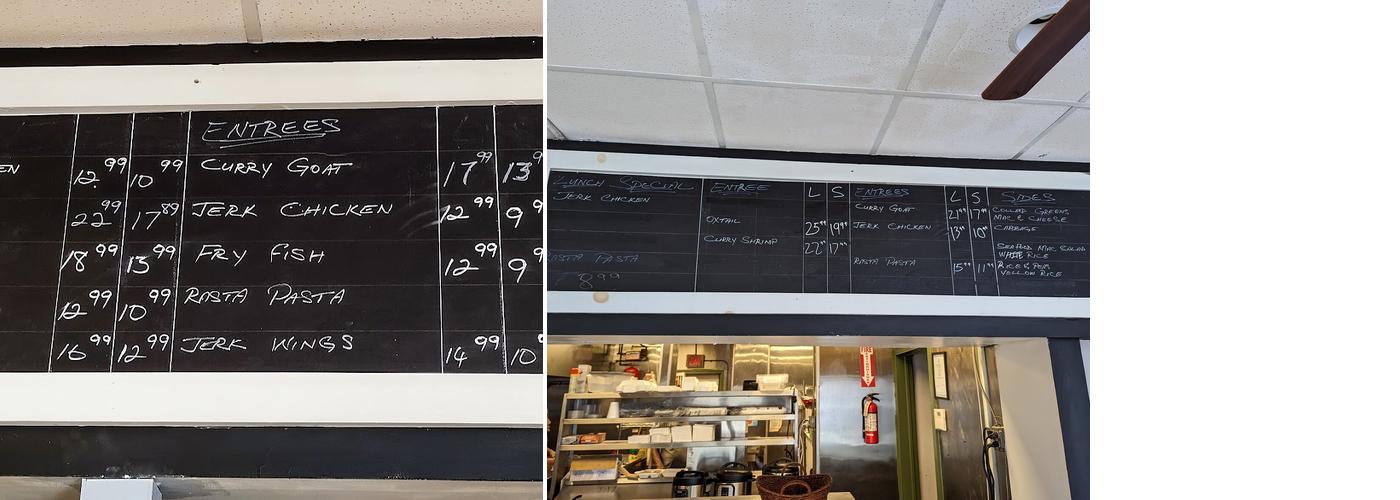 ENTREES
12.99 10.99 CURRY GOAT 17.99 13
22.99 17.89 JERK CHICKEN 12.99 9
18.99 13.99 FRY FISH 12.99 9
12.99 10.99 RASTA PASTA
16.99 12.99 JERK WINGS 14.99 10
LUNCH SPECIAL ENTREE L S ENTREES L S SIDES
JERK CHICKEN CURRY GOAT 21.99 17.99 COLLAD GREENS
MAC & CHEESE
OXTAIL 25.99 19.99 JERK CHICKEN 13.99 10.99 CABBAGE
CURRY SHRIMP 22.99 17.99 SEAFOOD MAC SALAD
WHITE RICE
RASTA PASTA RASTA PASTA 15.99 11.99 RICE & PEA
YELLOW RICE
8.99